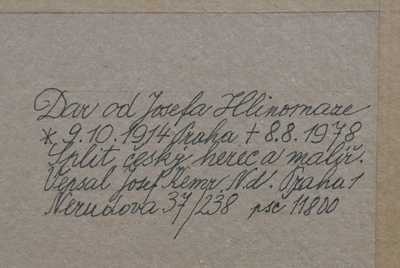 Dar od Josefa Hlinomaze
* 9.10.1914 Praha + 8.8.1978
Split, český herec a malíř.
Vepsal Josef Kemr. N.d. Praha 1
Nerudova 37/238 psč 11800